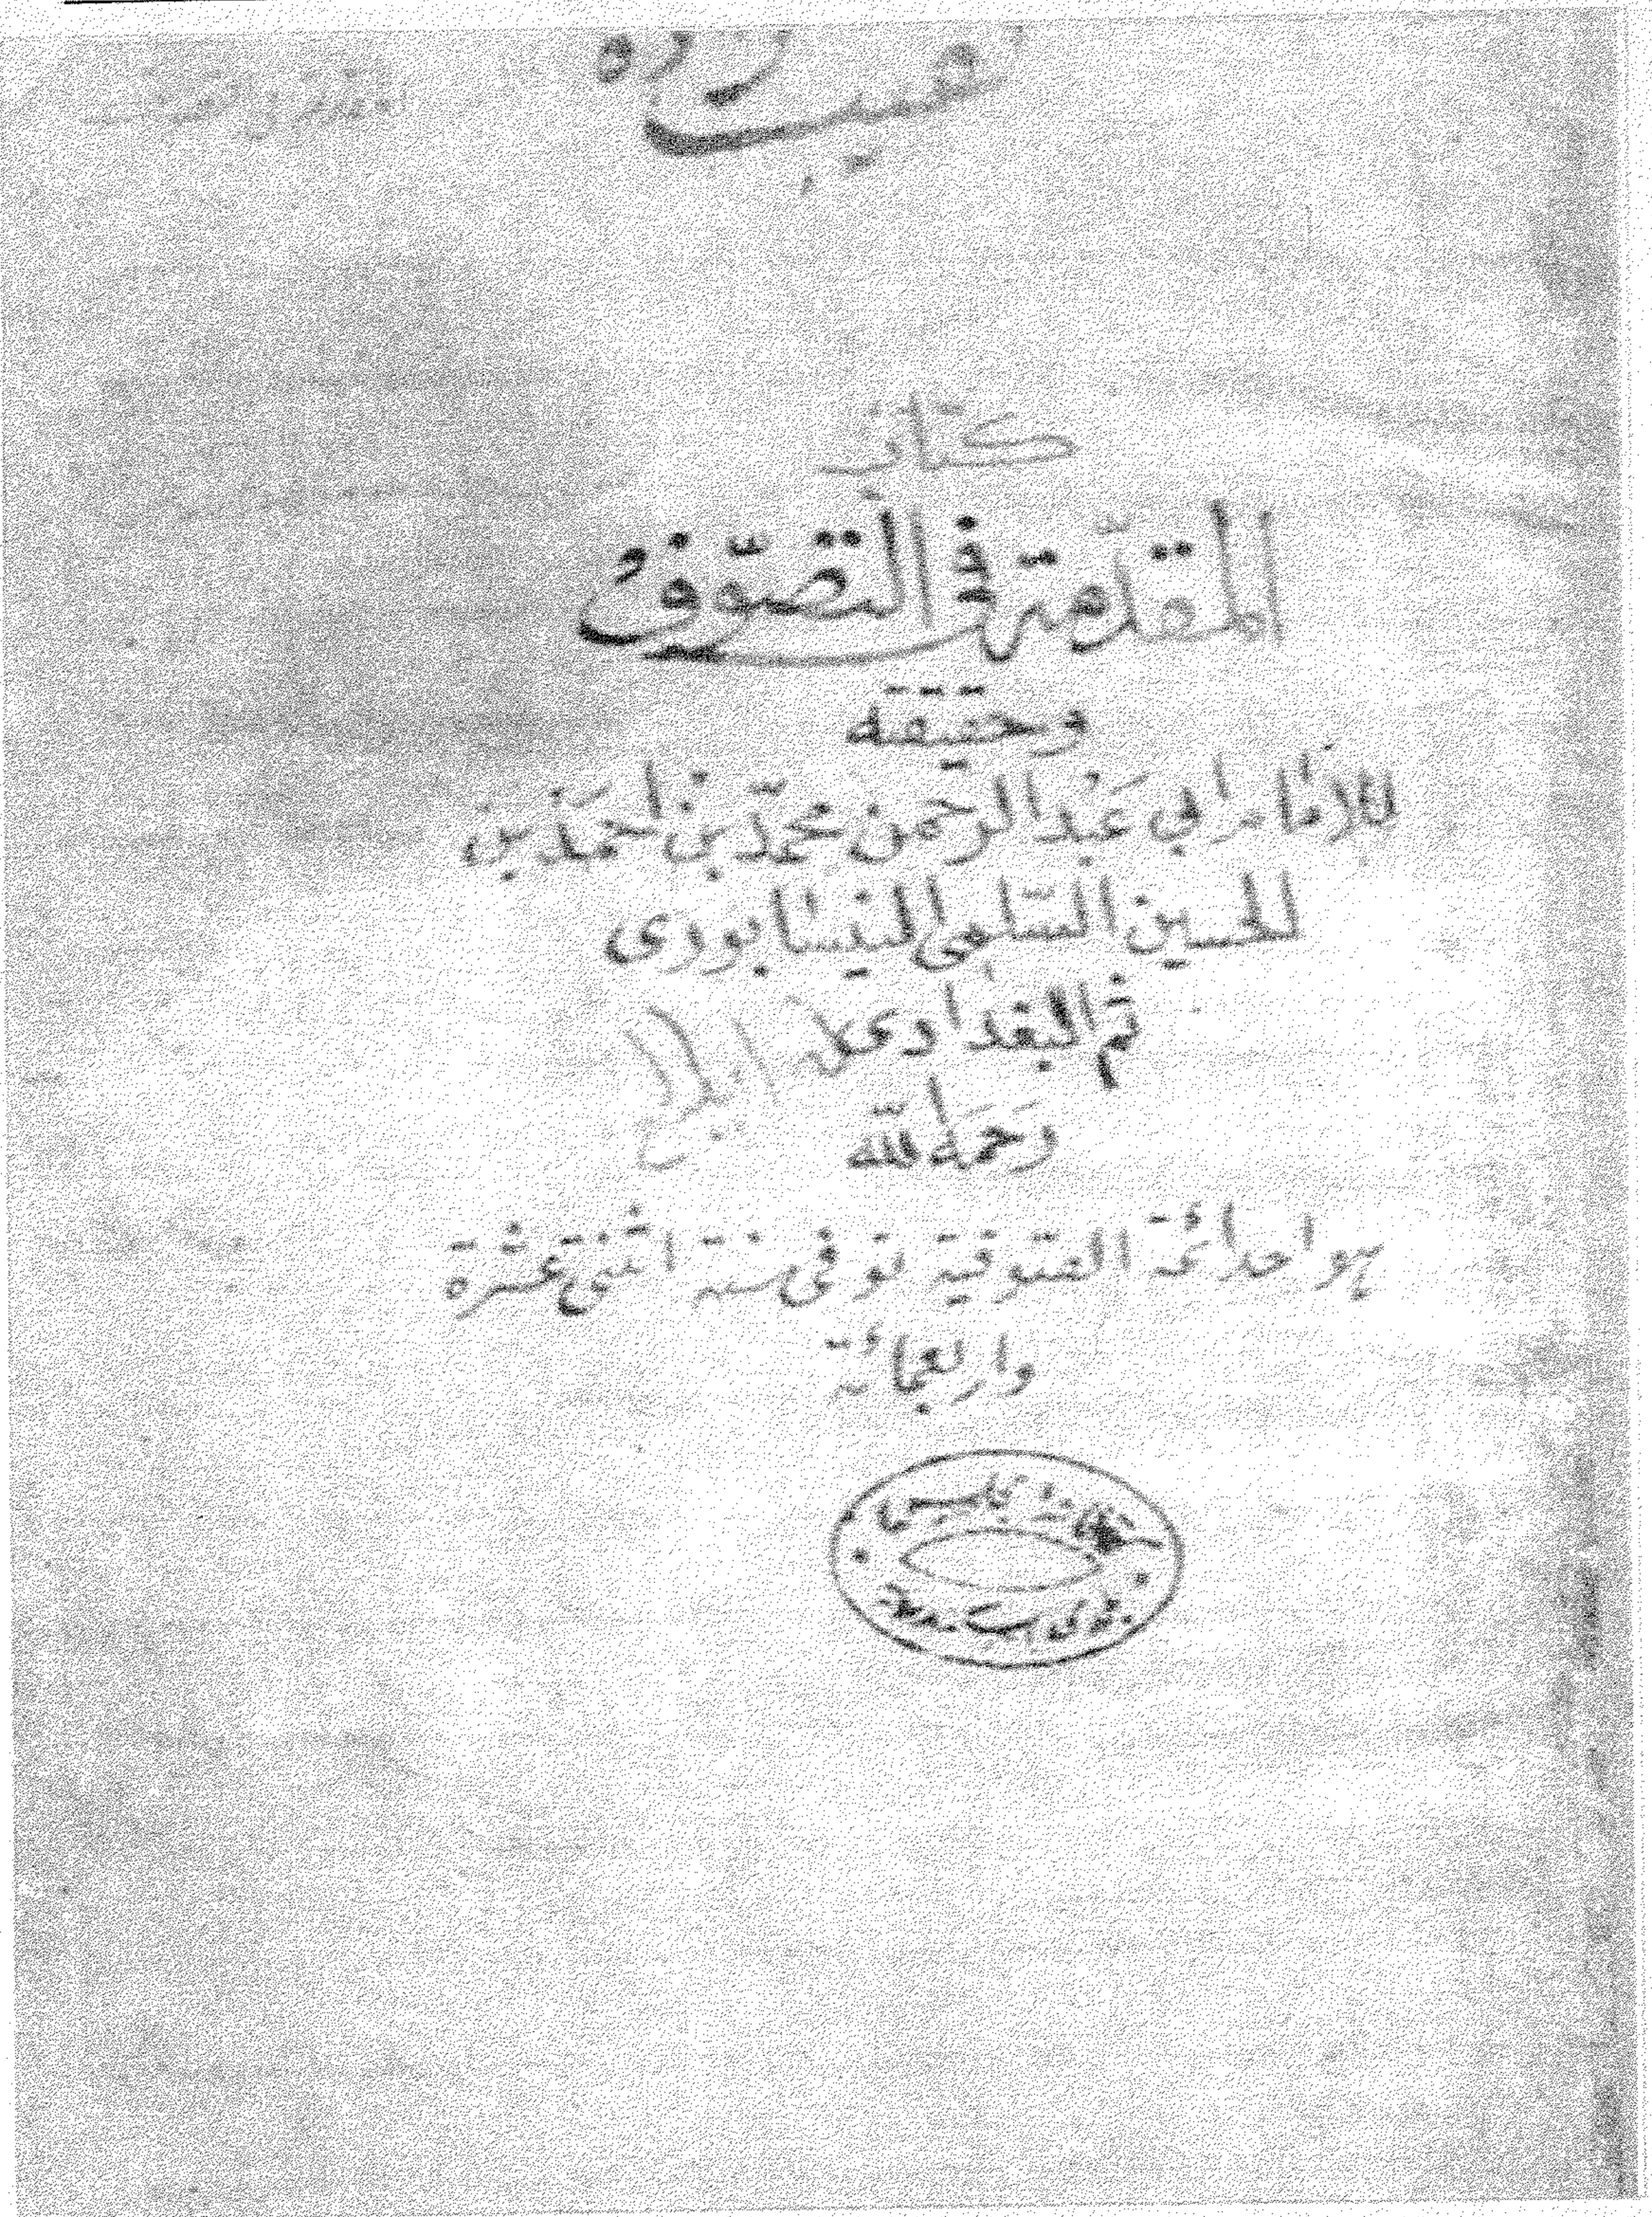 المقدمة في التصوف
كتاب
المقدّمة في التصوّف
وحقيقته
للامام ابي عَبْد الرحمن محمّد بن احمَد بن
الحسين السّلمى النيسابورى
ثم البغدادى
رَحمَه الله
هو احد ائمة الصوفية توفى سنة اثنتى عشرة
واربعمائة